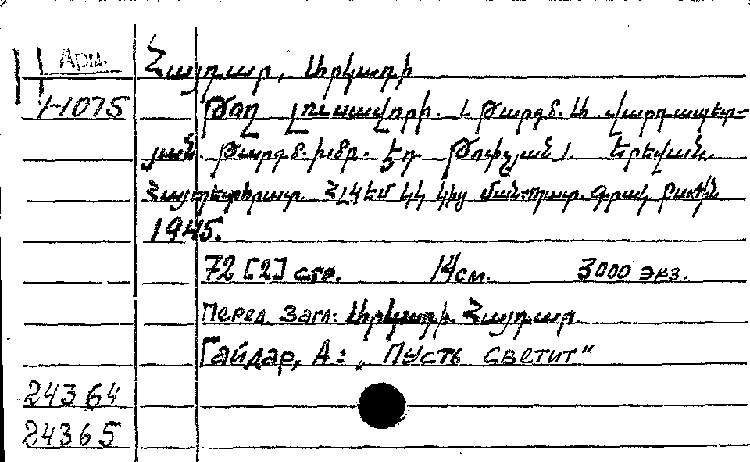 Арм.
Հայդար, Արկադի
1-1075
Թող լուսավորի. (Թարգմ. Ա. Վարդապետ-
յան. Թարգմ. խմբ. Էդ. Թոփչյան). Երեվան,
Հայպետհրատ. ՀԼԿԵՄ ԿԿ կից մանուպատ. գրակ. բաժին
1945.
72 [2] стр. 14 см. 3000 экз.
Перед Загл: Արկադի Հայդար.
Гайдар, А: „Пусть светит"
24364
24365